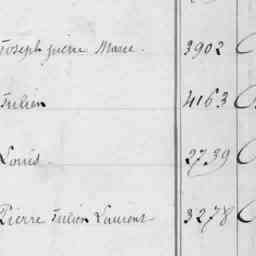 Joseph pierre Marie. 3902
Julien 4163
Louis. 2739
Pierre Julien Laurent 3278